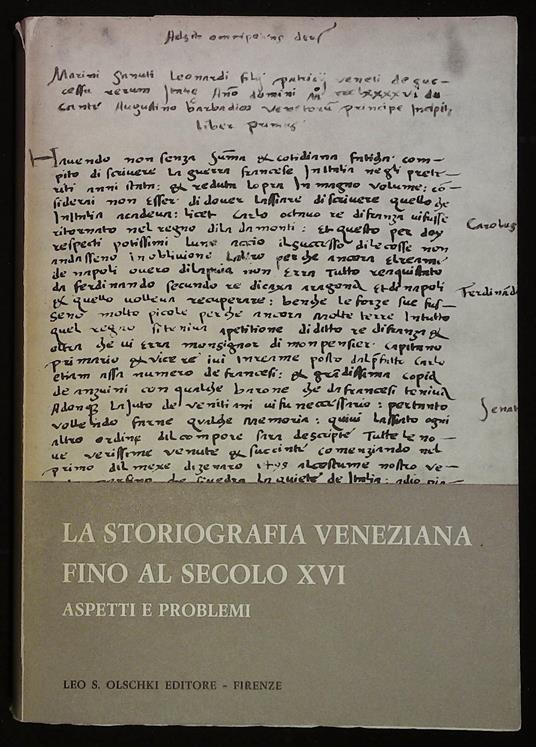 Adsit omnipotens deus
Marini Sanuti Leonardi filij patricij veneti de suc-
cessu rerum Italie Año domini M cccc lxxxxvi du-
cante Augustino barbadico venetorũ principe Incipit
liber primus
Havendo non senza suma & cotidiana fatica com-
pito di scrivere la guerra francese In Italia negli prete-
riti anni stata: & reduta sopra In magno volume: co-
siderai non esser di dover lassiare di scrivere quello che
in Italia acadeva: licet Carlo octavo re di franza vi fusse
ritornato nel regno di la da monti: Et questo per doy
respecti potissimi l'uno accio il successo di le cosse non
andasseno in oblivione l'altro perche ancora el reame
de napoli overo di la mia non erra tutto reaquistato
da ferdinando secundo re di caxa aragona Et di napoli
& quello voleva recuperare: benche le forze sue fus-
seno molto picole perche ancora molte terre In tutto
quel regno si teniva a petitione di ditto re di franza &
oltra che vi erra monsignor di monpensier capitano
primario & vice re ivi In reame posto dal prefato Carlo
etiam assa numero de francesi: & grãdissima copia
de anzuini con qualche barone che da francesi teniva
Adonq lajuto de venitiani vi fu necessario: pertanto
vollendo farne qualche memoria: quivi lassiato ogni
altro ordine di compore sara descripte Tutte le no-
ve verissime venute & succinte comenziando nel
primo dil mexe di zenaro 1495 al costume nostro ve-
la quiete de Italia:
Carolus
Ferdinãdo
Senat
LA STORIOGRAFIA VENEZIANA
FINO AL SECOLO XVI
ASPETTI E PROBLEMI
LEO S. OLSCHKI EDITORE - FIRENZE